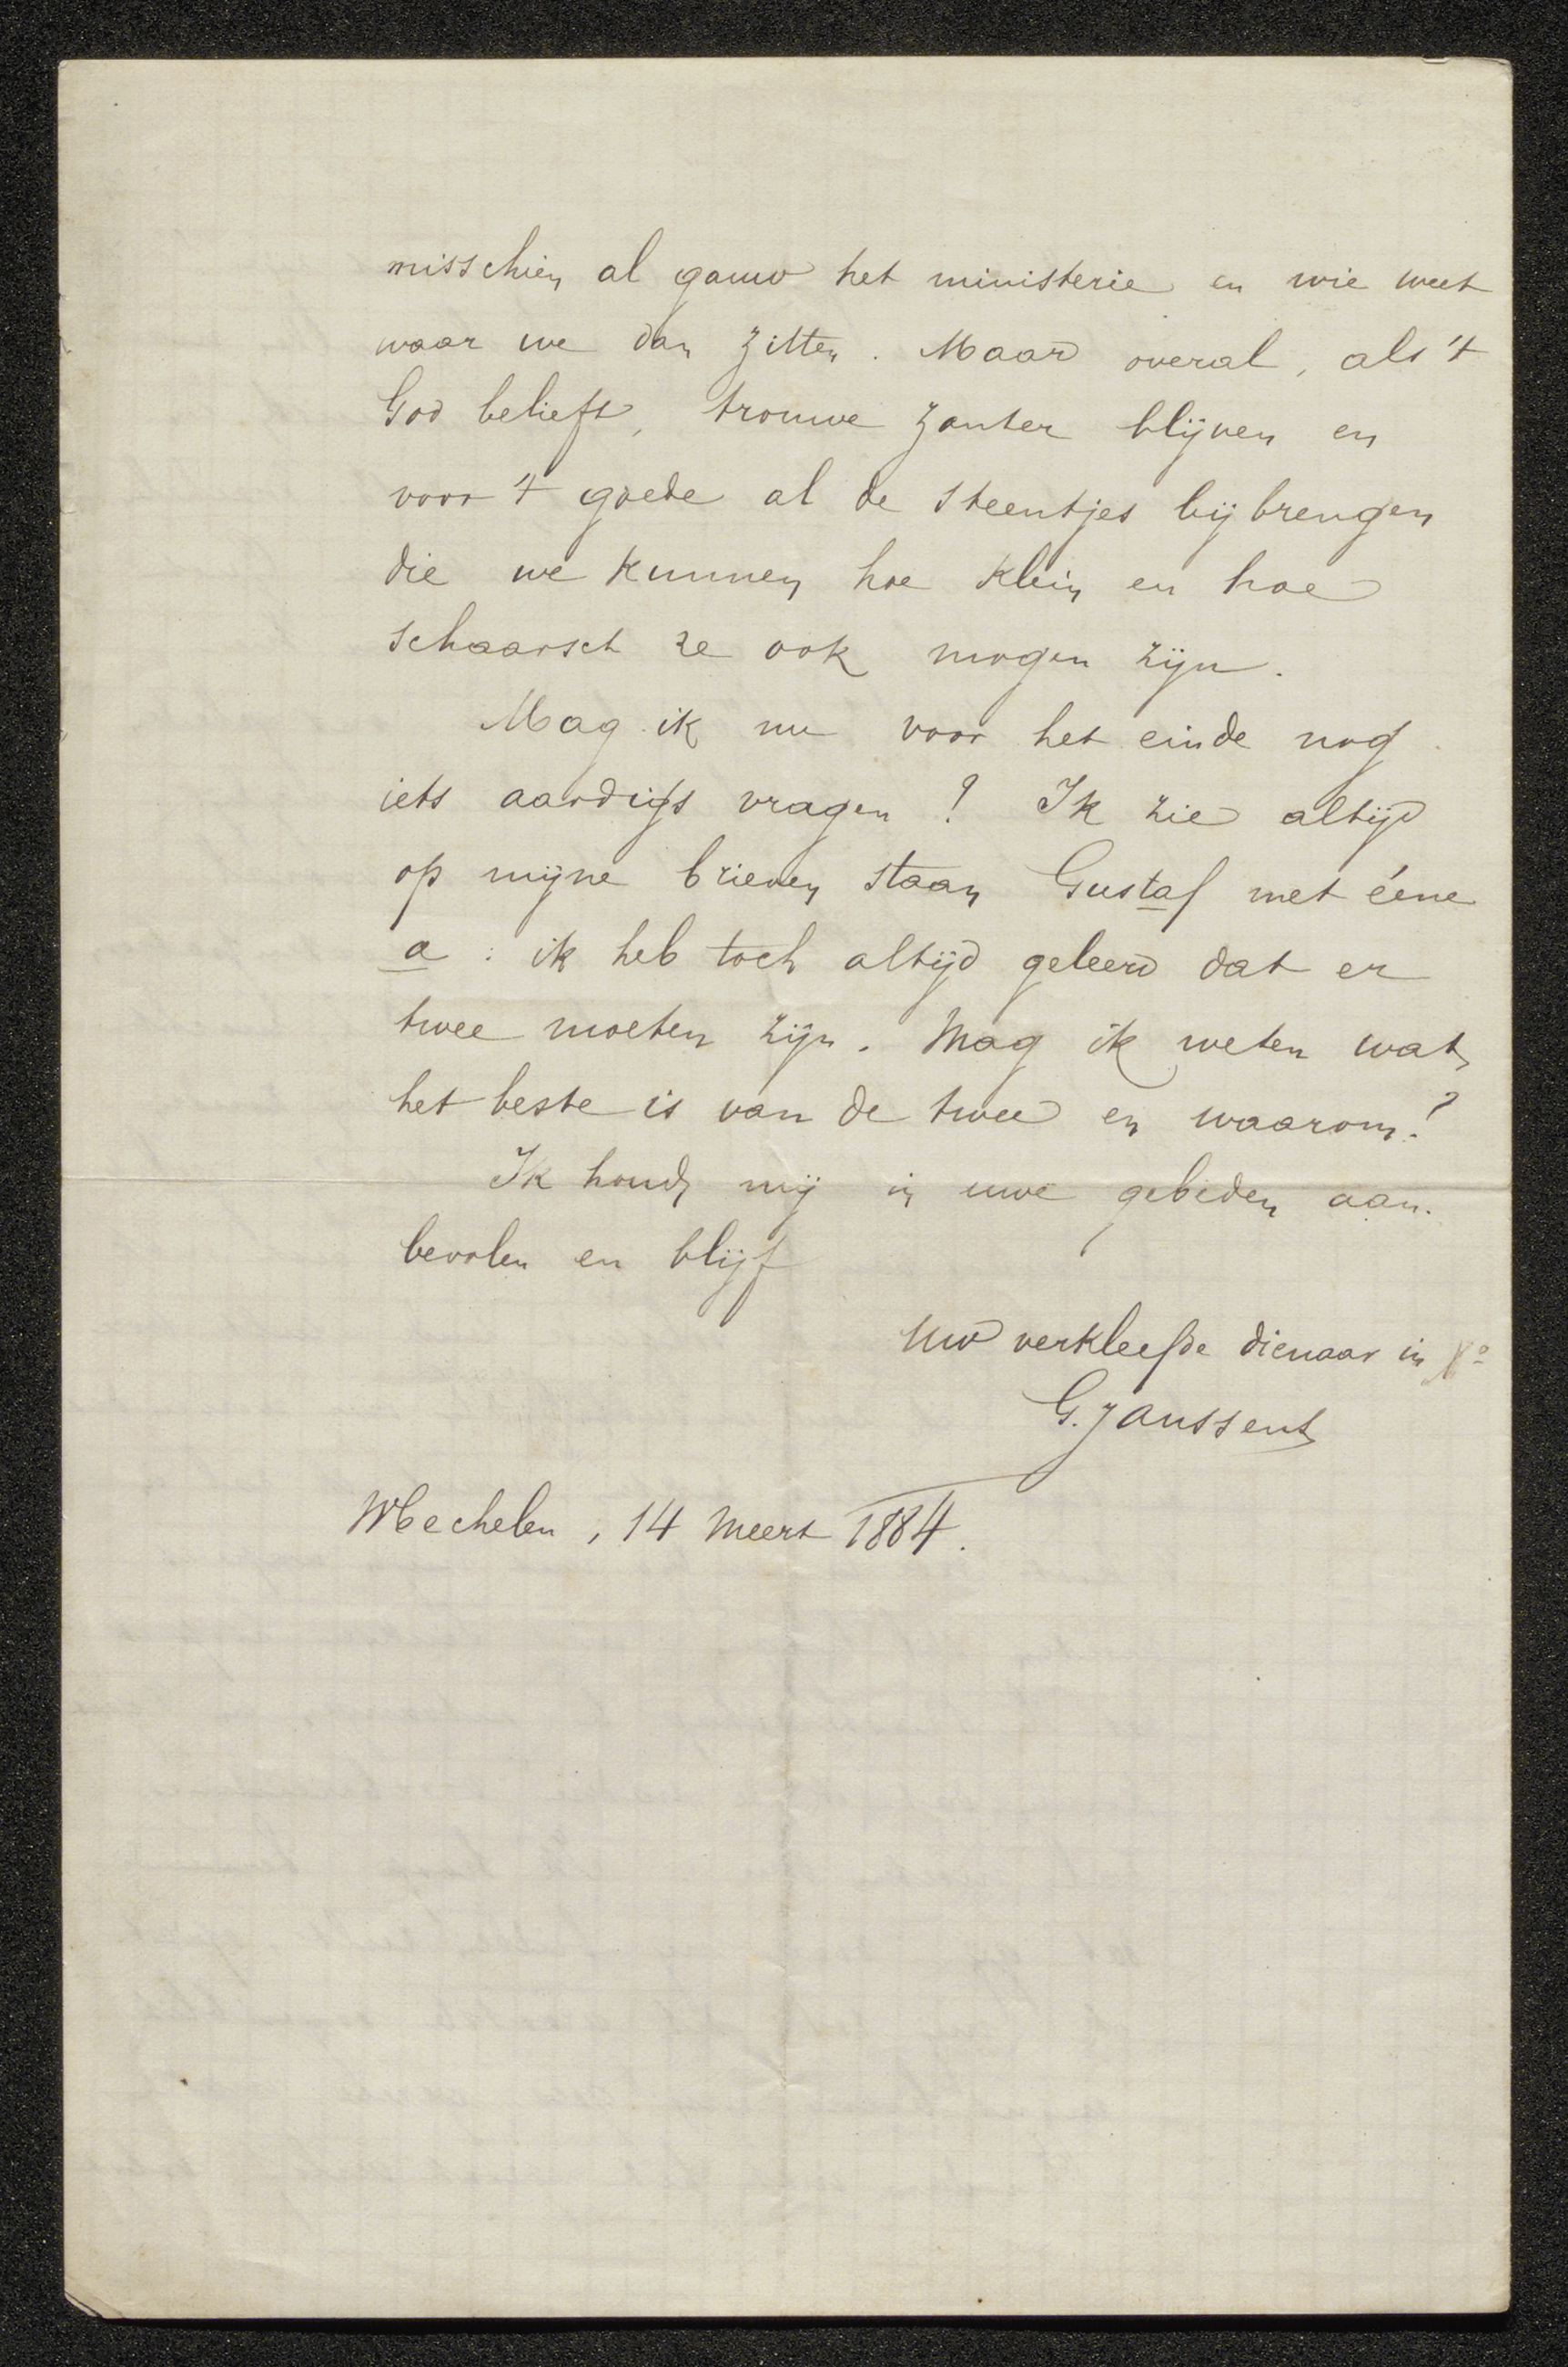 misschien al gauw het ministerie en wie weet
waar we dan zitten. Maar overal, als 't
God belieft, trouwe zanter blijven en
voor 't goede al de steentjes bijbrengen
die we kunnen hoe klein en hoe
schaarsch ze ook mogen zijn.
Mag ik nu voor het einde nog
iets aardigs vragen? Ik zie altijd
op mijne brieven staan Gustaf met ééne
a: ik heb toch altijd geleerd dat er
twee moeten zijn. Mag ik weten wat
het beste is van de twee en waarom?
Ik houd mij in uwe gebeden aan-
bevolen en blijf
Uw verkleefde dienaar in Xº
G. Janssens
Mechelen, 14 Meert 1884.